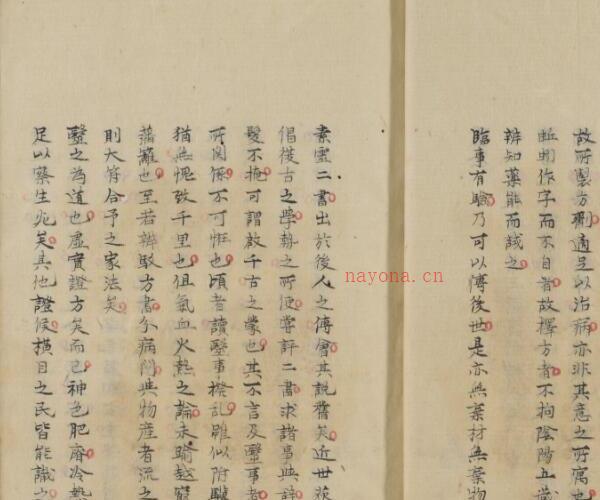 故所製方劑適足以治病亦非其意之所寓也
作字而不自者故擇方者不拘陰陽五
辨知藥能而試之
臨事有驗乃可以傳後世是亦無棄材無棄物
素靈二書出於後人之傳會其說舊矣近世
倡復古之學執之所從嘗評二書求諸事與辞
髮不掩可謂啟千古之蒙也其不言及毉事者
所関係不可誣也頃者讀毉事撥乱雖似附驥
猶無愧致千里也但氣血火熱之論未踰越
藩籬也至若辨駁方書分病門與物産者流之
則大符合予之家法矣
毉之為道也虛實證方矣而已神色肥瘠冷熱
足以察生死矣其他證候横目之民皆能識之
nayona.cn